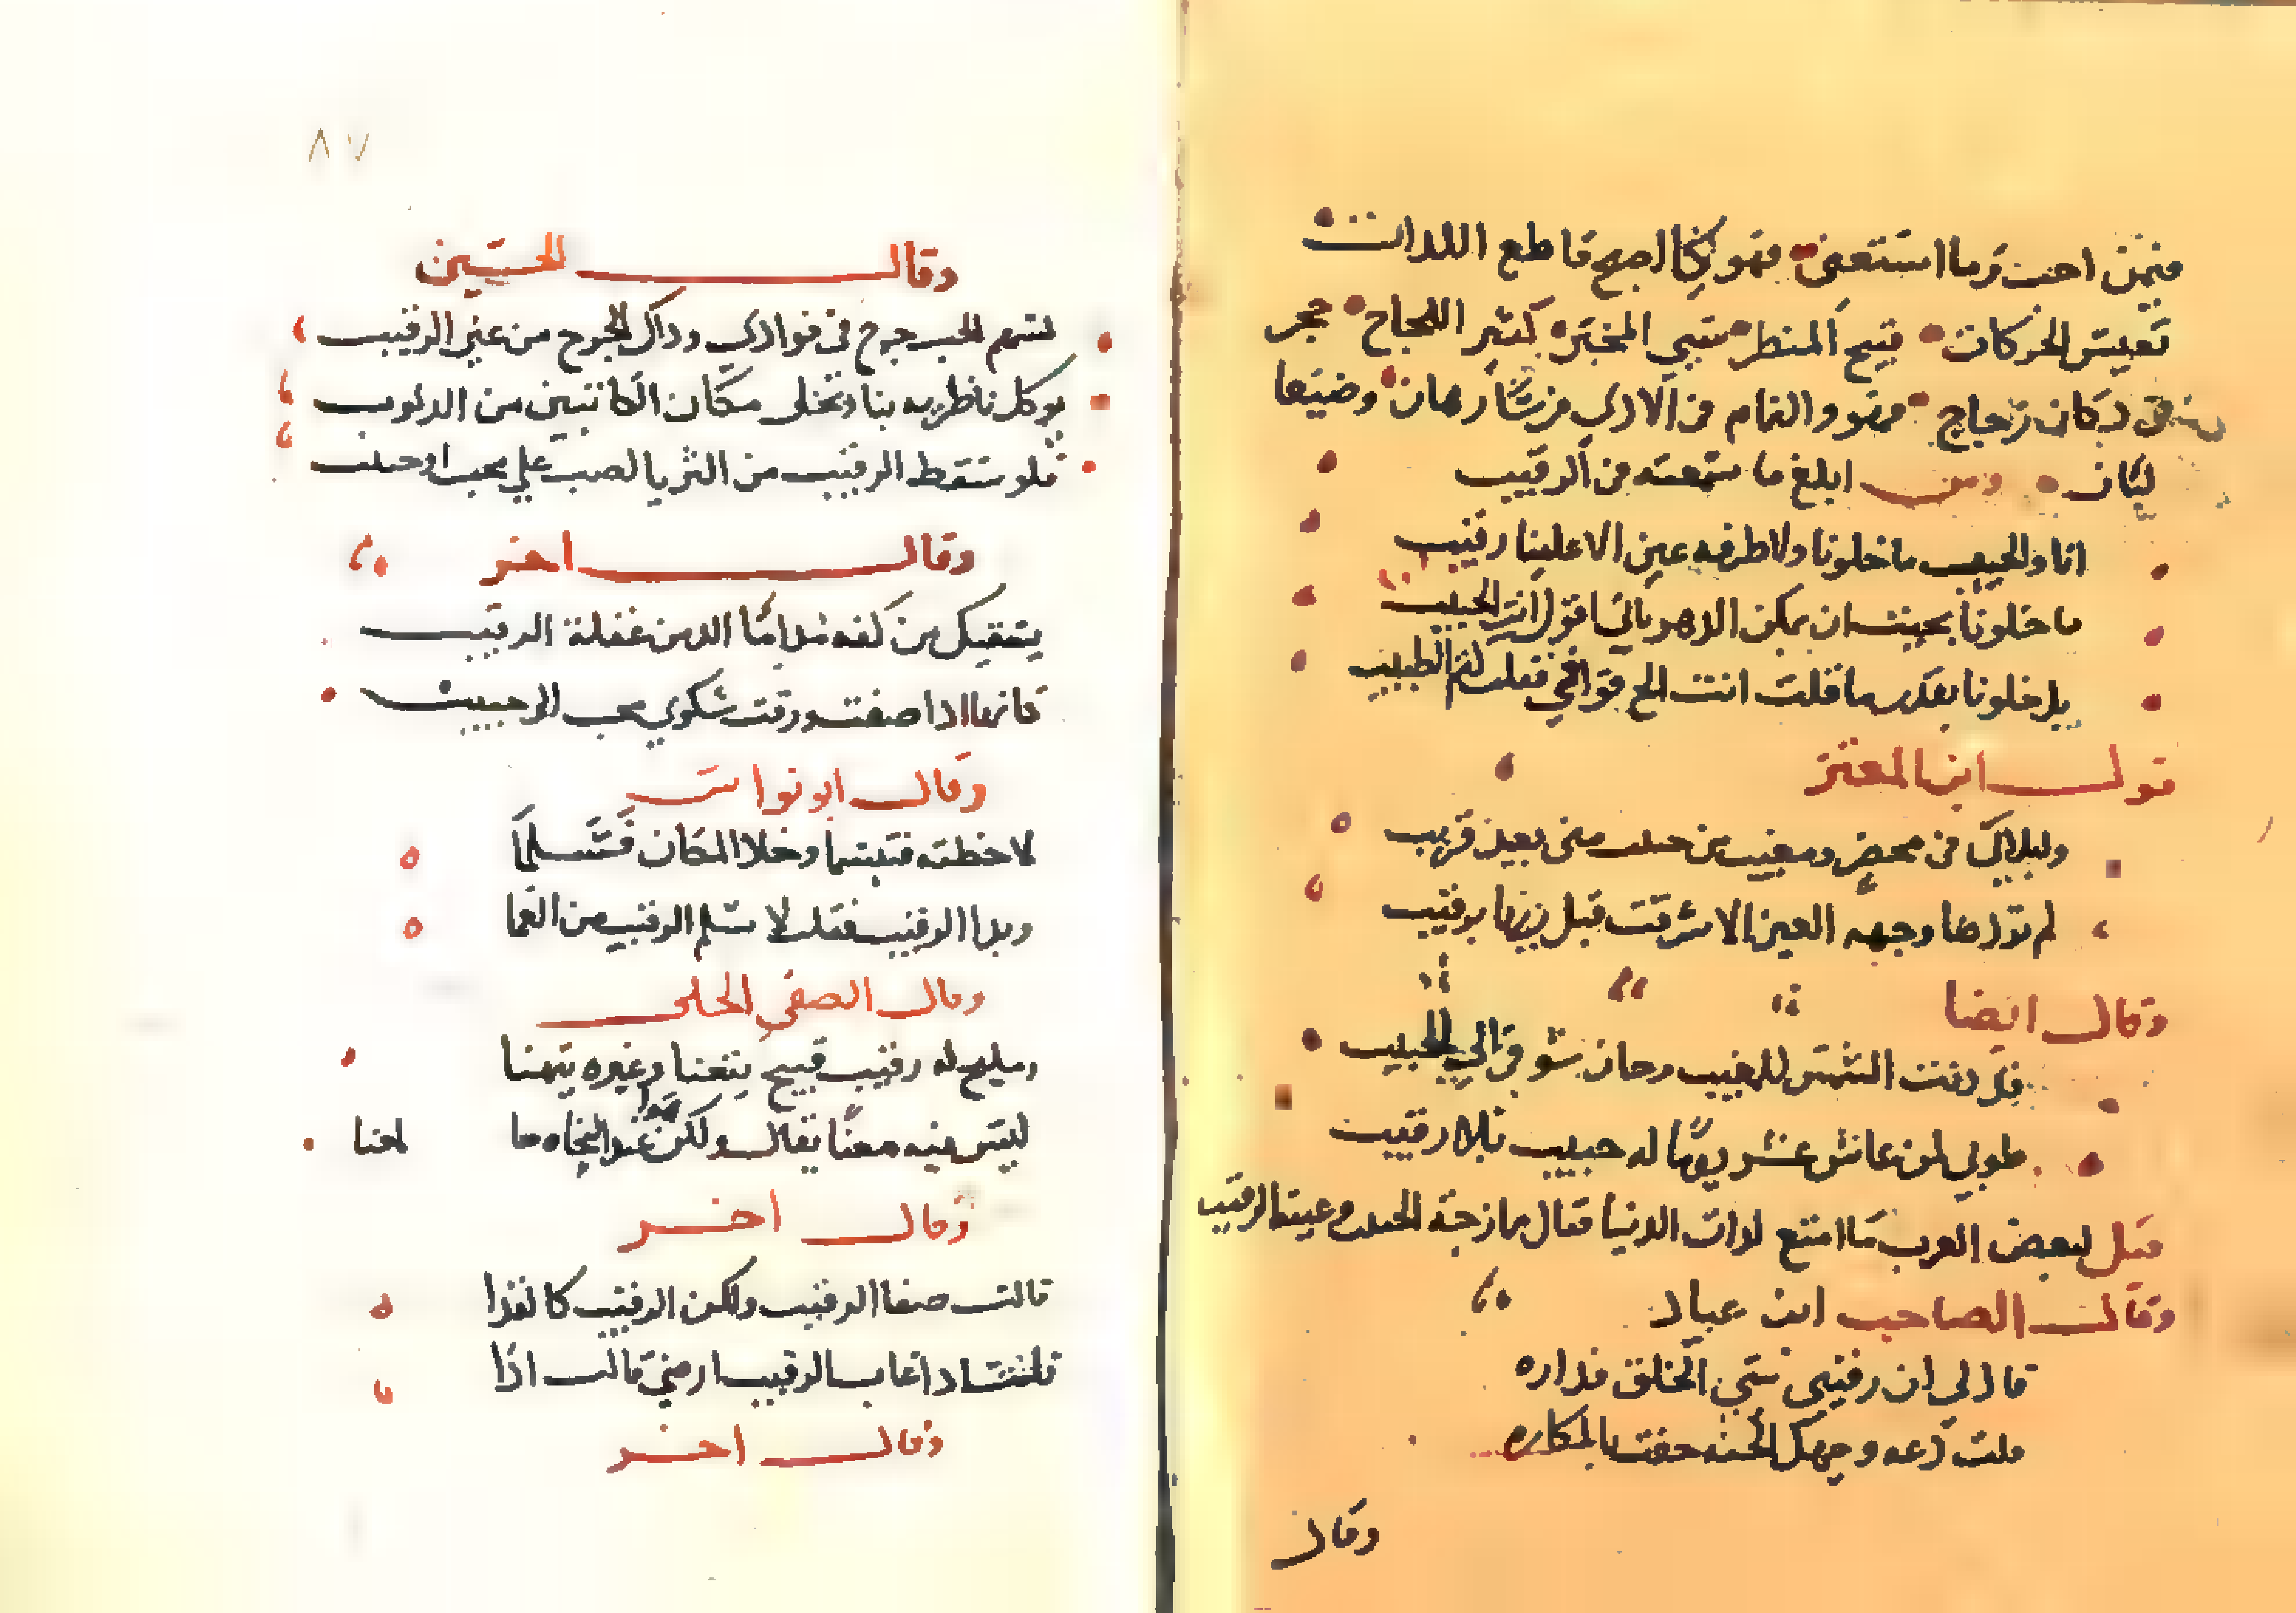 فيمن احب وما استغنى فهو كالصبح قاطع اللذات
نفيس الحركات قبيح المنظر سيي المخبر كثير اللجاج حجر
في دكان زجاج فهو والنمام في الادى فرسا رهان وضيعا
لبان ومن ابلغ ما سمعته في الرقيب
انا والحبيب ما خلونا ولا طرفه عين الا علينا رقيب
ما خلونا بحيث ان يمكن الدهر باني اقول انت الحبيب
بل خلونا بقدر ما قلت انت الح فوافي فقلت الطبيب
قول ابن المعتز
وابلاي في محضر ومغيب من حبيب مني بعيد قريب
لم ترد ما وجهه العين الا شرقت قبل ريها برقيب
وقال ايضا
قد دنت الشمس للمغيب وحان شوقي الي الحبيب
طوبي لمن عاش عشر يوما له حبيب بلا رقيب
قيل لبعض العرب ما امتع لدات الدنيا فقال ممازحة الحبيب وغيبة الرقيب
وقال الصاحب ابن عباد
قال لي ان رقيبي سيي الخلق فداره
قلت دعه وجهك الجنه حفت بالمكاره
وقال
٨٧
وقال الحسين
لسهم الحب جرح في فوادي وداك الجرح من عين الرقيب
يوكل ناظريه بنا ويحكي مكان الكاتبين من الدنوب
فلو سقط الرقيب من الثريا لصب علي محب او حبيب
وقال اخر
يسقيك من كفه مداما الد من غفلة الرقيب
كانها اد اصفت ورقت شكوي محب الي حبيب
وقال ابو نواس
لاحظته فتبسما وخلا المكان فسلما
وبدا الرقيب فقلت لا سلم الرقيب من العما
وقال الصفي الحلي
ومليح له رقيب قبيح يتعنا وغيره يتهنا
ليس فيه معنا يقال ولكن هو عند النجاه جا لمعنا
وقال اخر
قالت صفا الرقيب ولكن الرقيب كالقذا
قلت اد اغاب الرقيب ارضي قالت اذا
وقال اخر